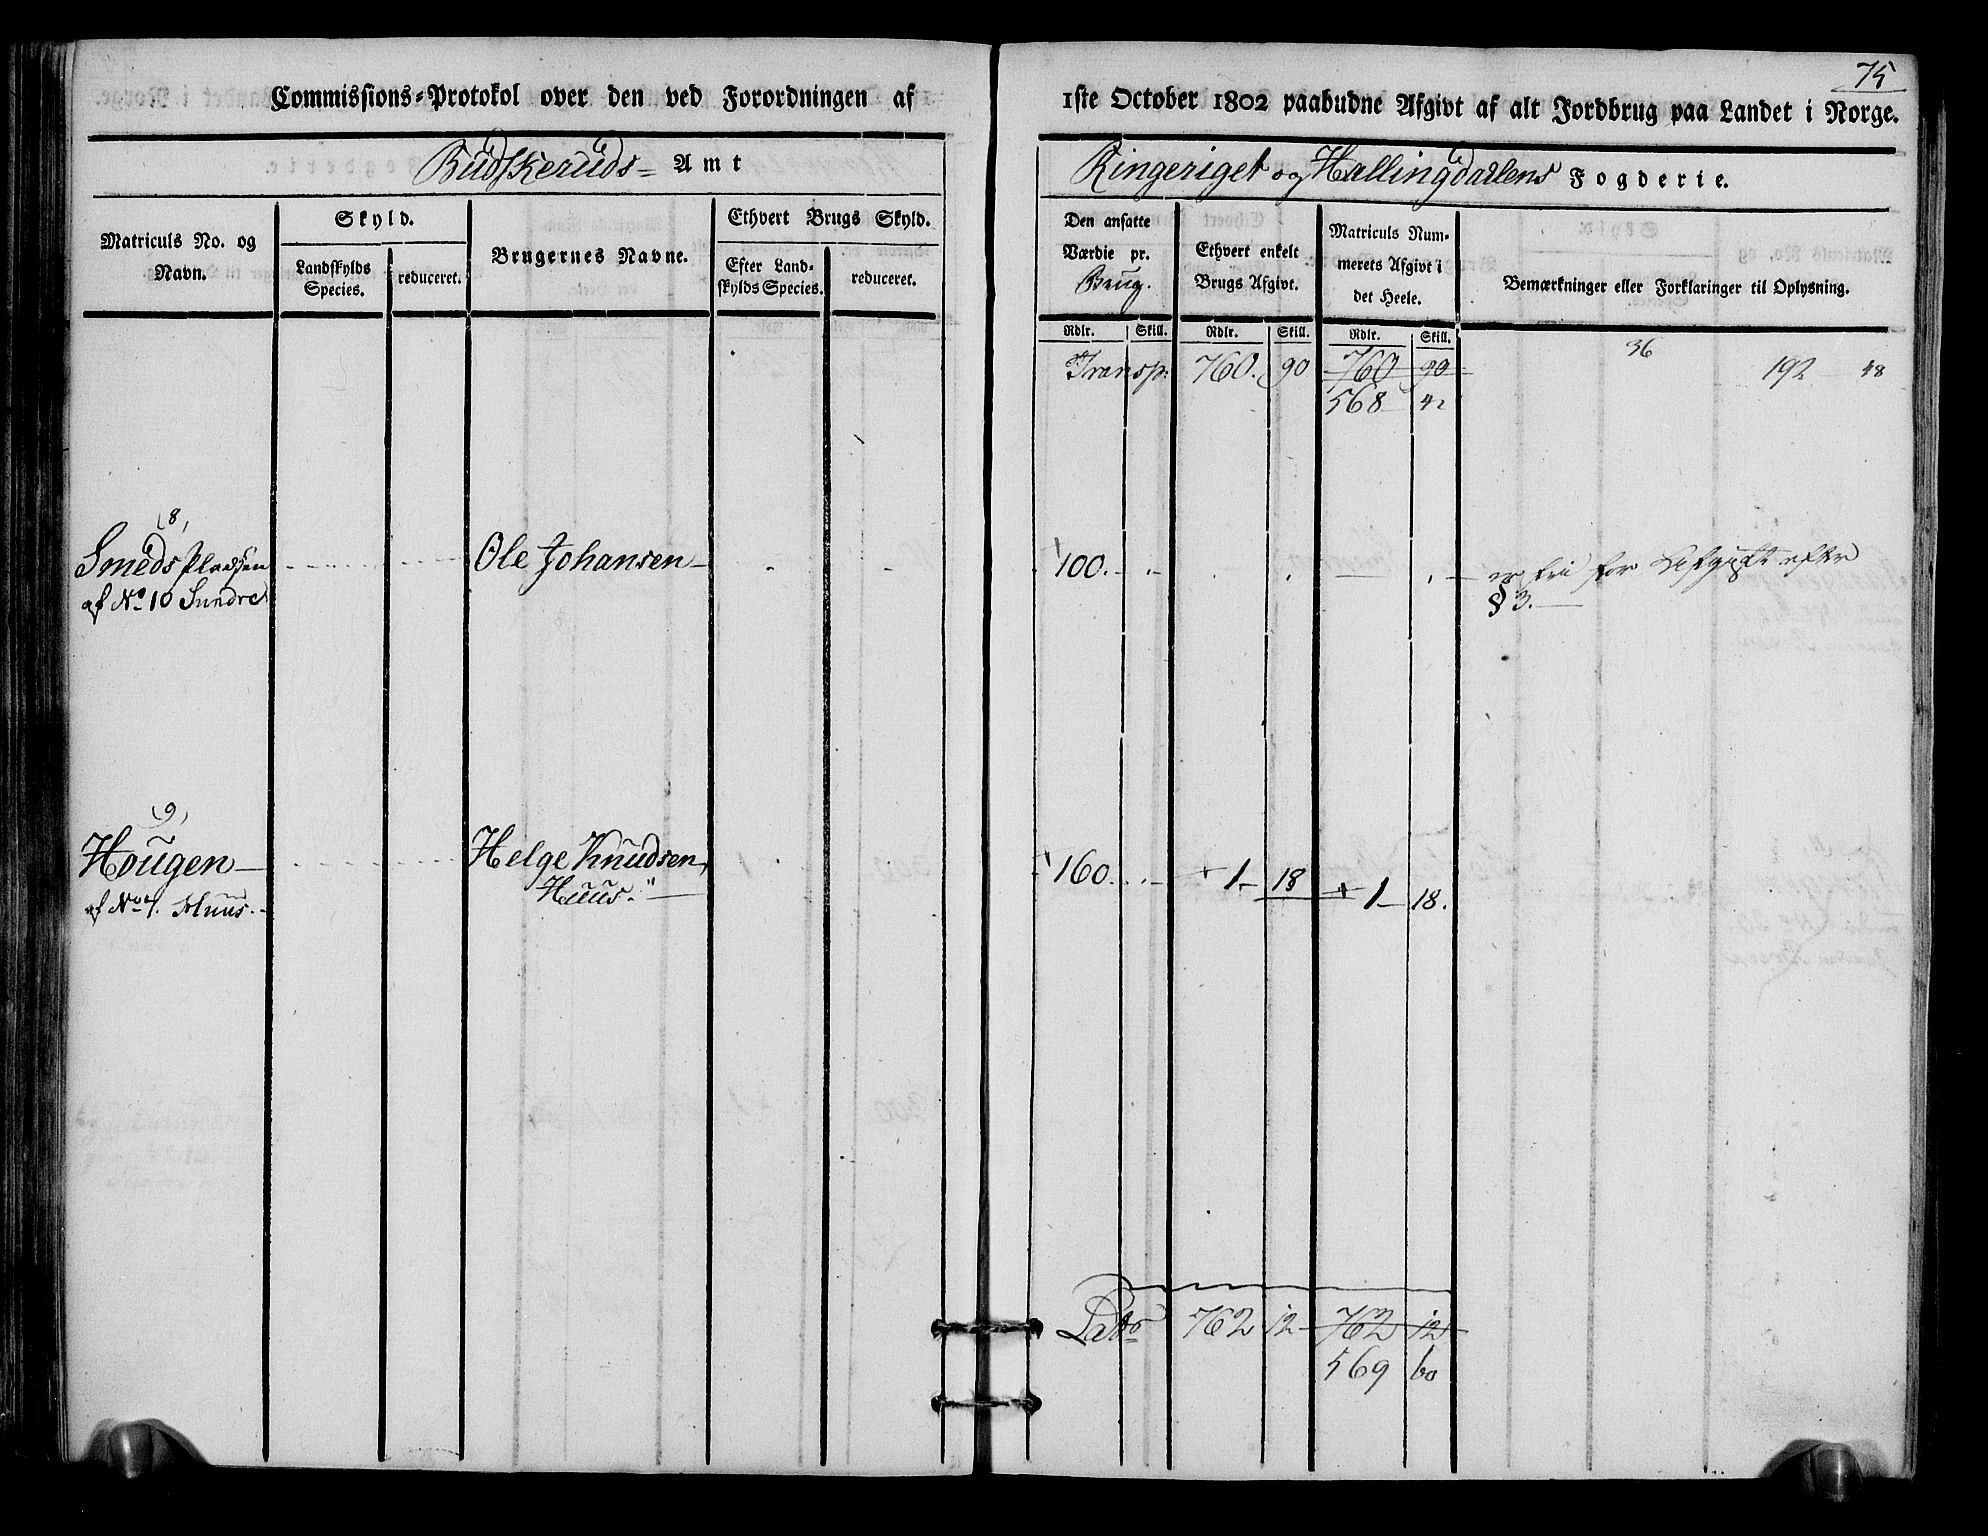 75
Commissions-Protokol over den ved Forordningen af 1ste October 1802 paabudne Afgivt af alt Jordbrug paa Landet i Norge.
Budskeruds= Amt
Ringeriget og Hallingdahlens Fogderie.
Matriculs No. og Navn.
Skyld.
Landskylds Species.
reduceret.
Brugernes Navne.
Ethvert Brugs Skyld.
Efter Landskylds Species.
reduceret.
Den ansatte Værdie pr. Brug.
Ethvert enkelt Brugs Afgivt.
Matriculs Nummerets Afgivt i det Heele.
Bemærkninger eller Forklaringer til Oplysning.
Rdlr. Skill. Rdlr. Skill. Rdlr. Skill.
Transp: 760. 90 760 90 36 192 48
568 42
8,
Smeds Pladsen Ole Johansen 100. er fri for Afgivt efter
af No 10 Sundre § 3.
9,
Hougen Helge Knudsen 160. + 1. 18 + 1 18.
af No 4. Huus. Huus.
Lats 762 12 762 12
569 60